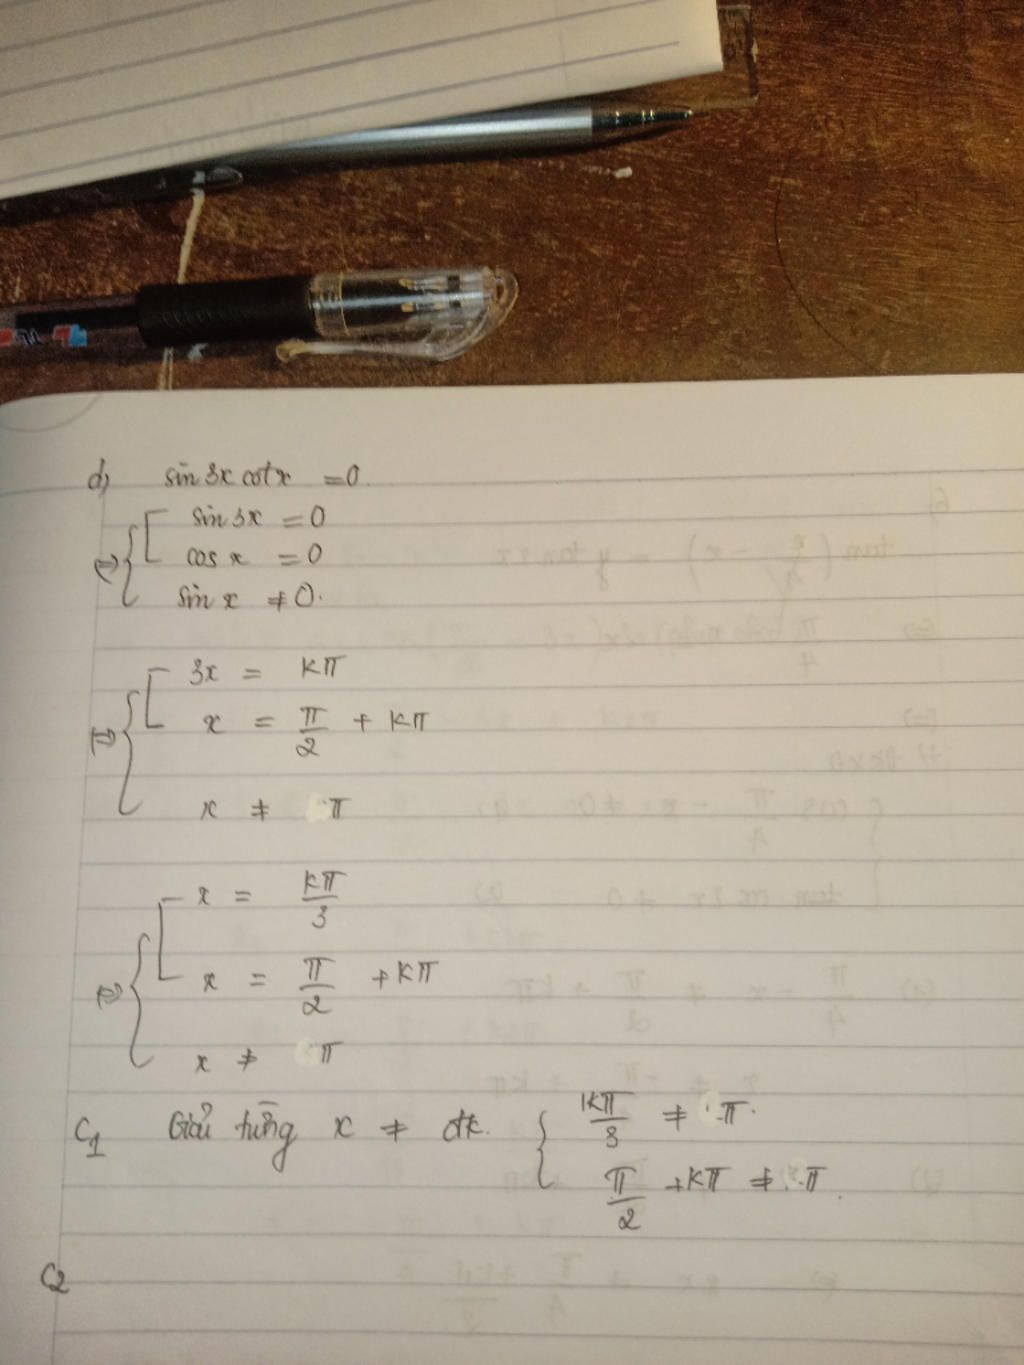 d) sin 3x cot x = 0.
sin 3x = 0
⇔ cos x = 0
sin x ≠ 0.
3x = kπ
⇔ x = π/2 + kπ
x ≠ π
x = kπ/3
⇔ x = π/2 + kπ
x ≠ π
C1 Giải từng x ≠ đk. kπ/3 ≠ π.
π/2 + kπ ≠ π.
C2